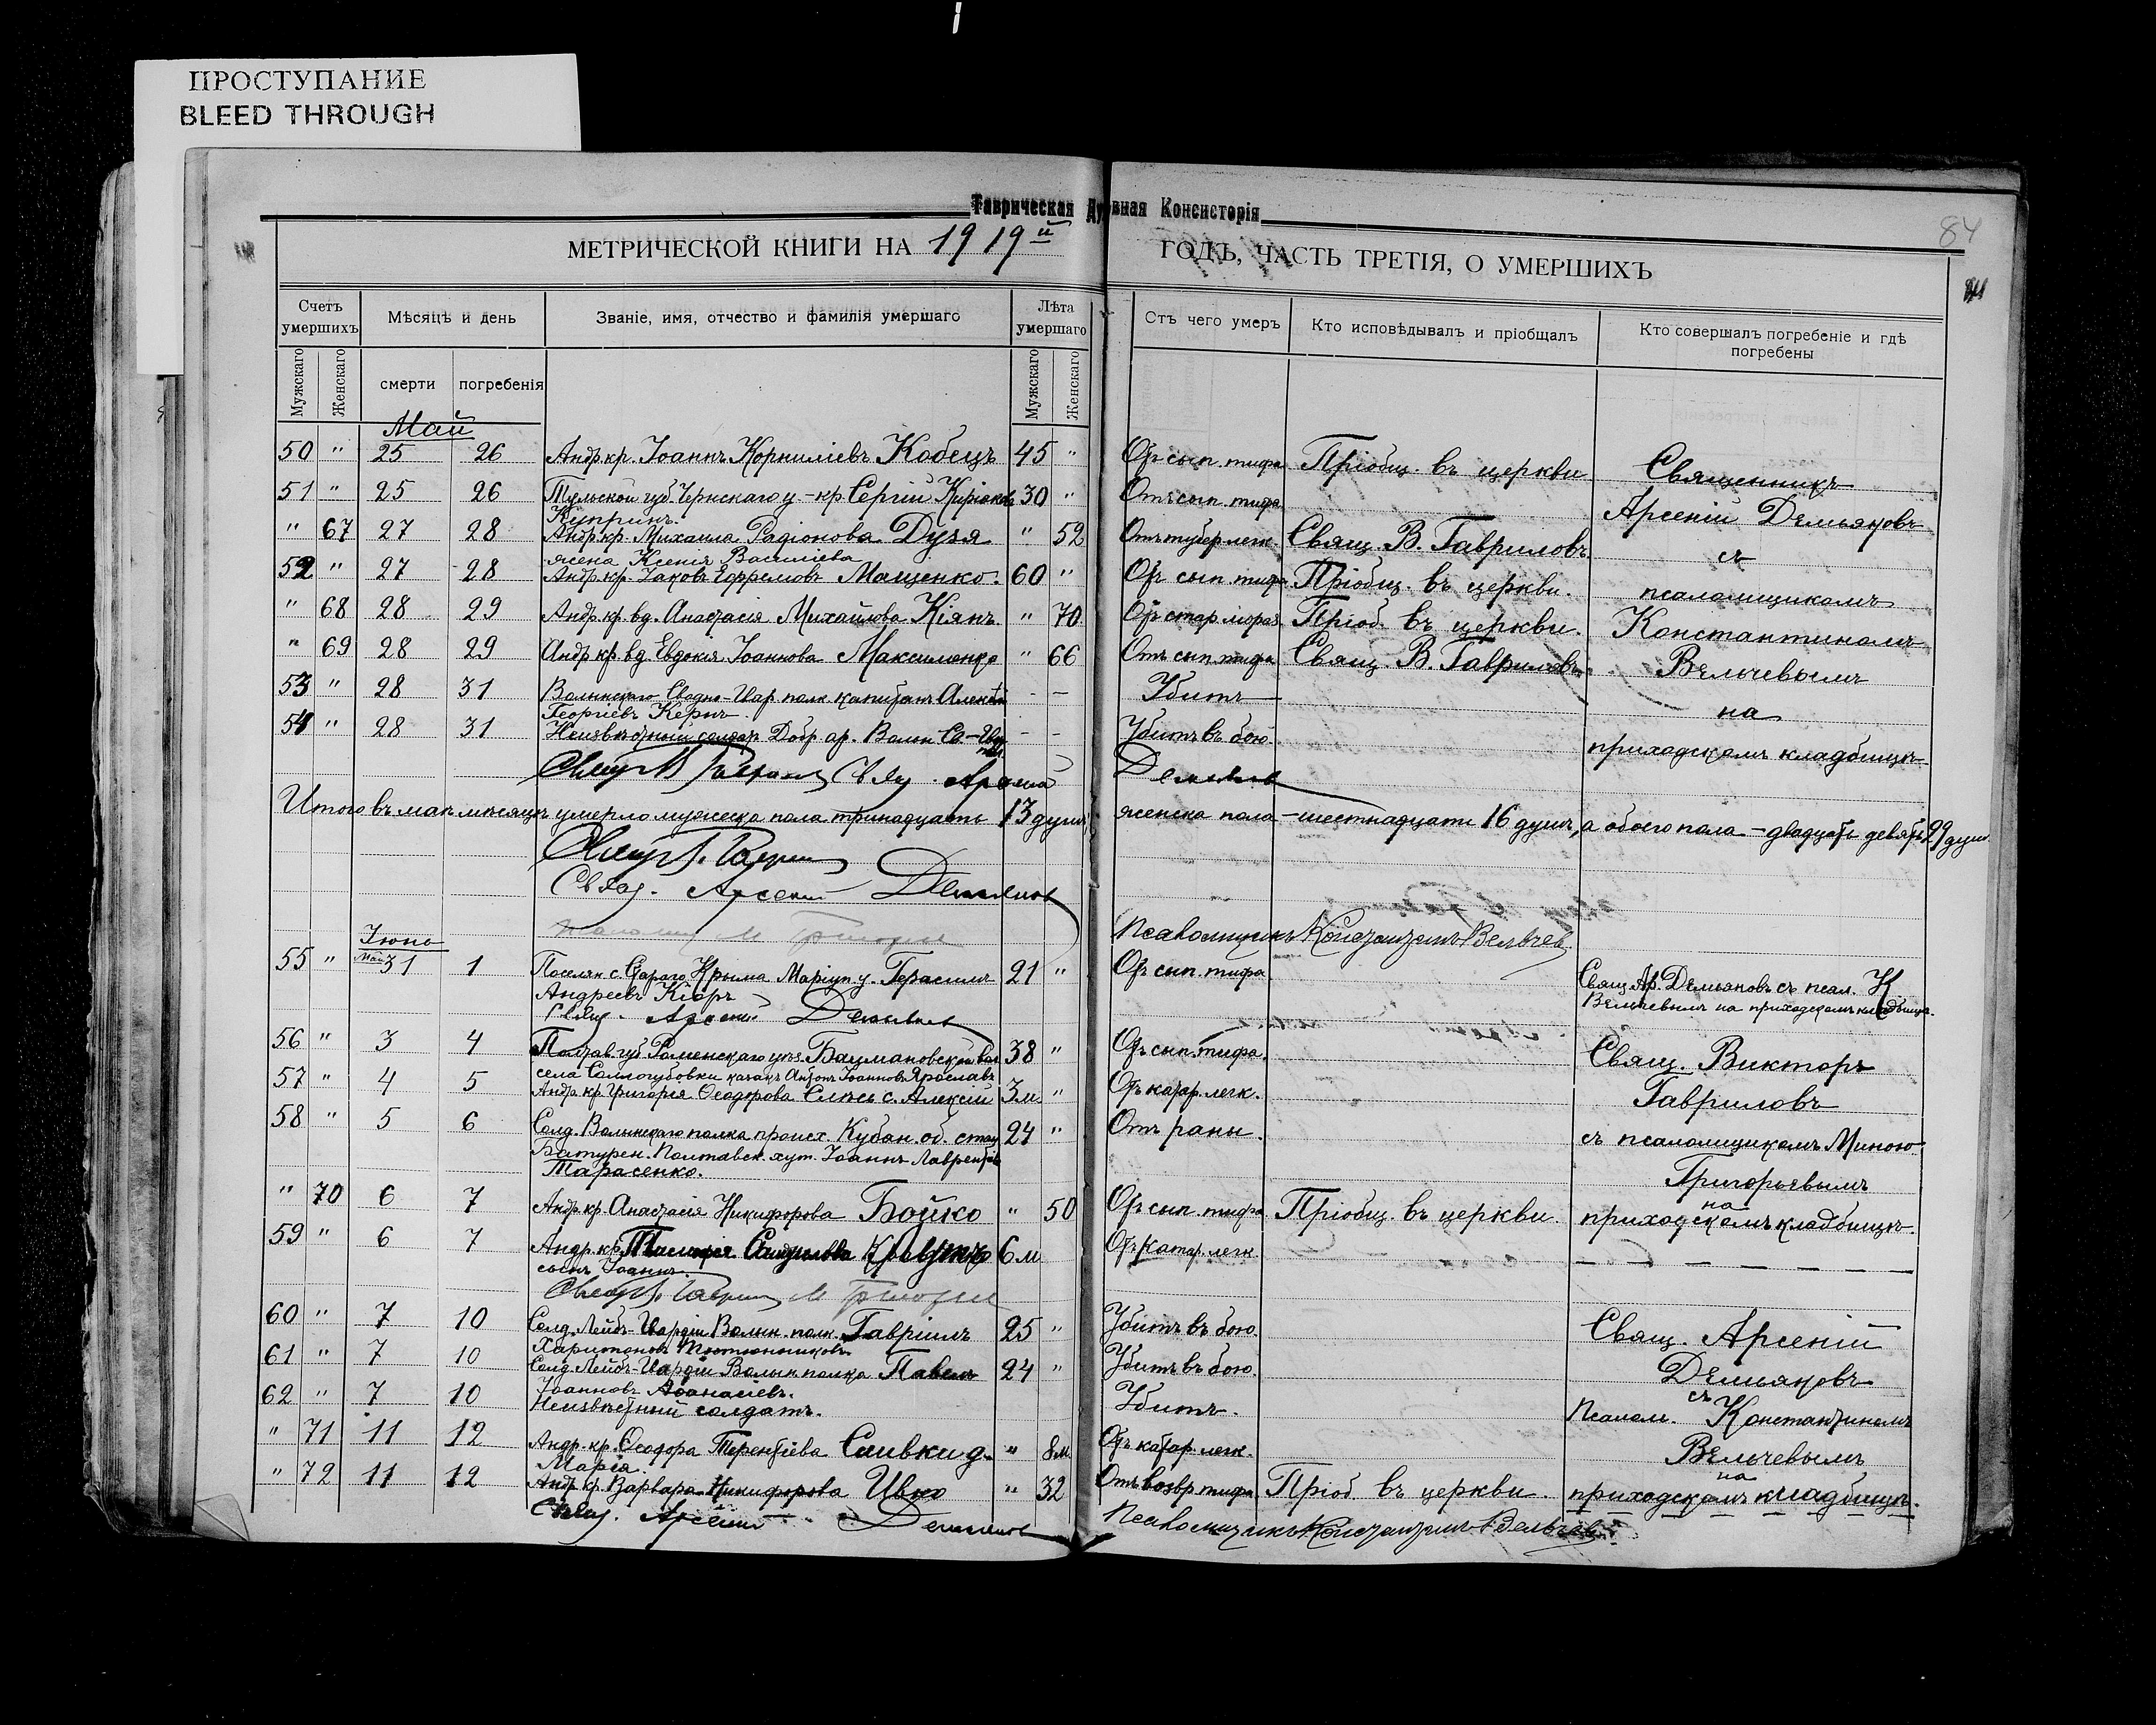 ПРОСТУПАНИЕ
BLEED THROUGH
Таврическая Духовная Консисторія
84
МЕТРИЧЕСКОЙ КНИГИ НА 1919й ГОДЪ, ЧАСТЬ ТРЕТІЯ, О УМЕРШИХЪ
Счетъ умершихъ
Мѣсяцъ и день
Званіе, имя, отчество и фамилія умершаго
Лѣта умершаго
Отъ чего умеръ
Кто исповѣдывалъ и пріобщалъ
Кто совершалъ погребеніе и гдѣ погребены
Мужскаго Женскаго смерти погребенія Мужскаго Женскаго
Май
50 " 25 26 Андр. кр. Іоаннъ Корниліевъ Кобецъ 45 " Отъ сып. тифа Пріобщ. въ церкви Священникъ
51 " 25 26 Тульской губ. Чернскаго у. - кр. Сергій 30 " Отъ сып. тифа Арсеній Демьяновъ
Купринъ.
" 67 27 28 Андр. кр. Михаила Радіонова Дузя " 52 Отъ тубер. легк. Свящ. В. Гавриловъ съ
жена Ксенія Василіева
52 " 27 28 Андр. кр. Іаковъ Ефремовъ Мащенко. 60 " Отъ сып. тифа Пріобщ. въ церкви. псаломщикомъ
" 68 28 29 Андр. кр. вд. Анастасія Михайлова Кіянъ. " 70 Отъ стар. Пріоб. въ церкви. Константиномъ
" 69 28 29 Андр. кр. вд. Евдокія Іоаннова Максименко " 66 Отъ сып. тифа Свящ. В. Гавриловъ. Вельчевымъ
53 " 28 31 Волынскаго Сводно-Гвар. полк. капитанъ - - Убитъ на
Георгіевъ Кернъ.
54 " 28 31 Неизвѣстный солдатъ Добр. ар. Волын. Св.-Гвар. - - Убитъ въ бою. приходскомъ кладбищѣ.
Свящ. В. Гавриловъ Свящ. Арсеній Демьяновъ
Итого въ маѣ мѣсяцѣ умерло мужеска пола тринадцать 13 душъ, женска пола - шестнадцать 16 душъ, а обоего пола - двадцать девять 29 душ.
Свящ. В. Гавриловъ
Свящ. Арсеній Демьяновъ
Псаломщикъ Константинъ Вельчев
Іюнь
55 " Май 31 1 Поселян. с. Стараго Крыма Маріуп. у. Герасимъ 21 " Отъ сып. тифа Свящ. Ар. Демьяновъ съ псал. К.
Андреевъ Кіоръ Вельчевымъ на приходскомъ кладбищѣ.
Свящ. Арсеній Демьяновъ
56 " 3 4 Полтав. губ. Роменскаго уѣз. Бацмановской вол. 38 " Отъ сып. тифа. Свящ. Викторъ
села казакъ Антонъ Іоанновъ Ярославъ
57 " 4 5 Андр. кр. Григорія Ѳеодорова с. Алексій 3 м " Отъ катар. легк. Гавриловъ
58 " 5 6 Солд. Волынскаго полка происх. Кубан. об. стан. 24 " Отъ раны. съ псаломщикомъ Миною
Батурин. Полтавск. хут. Іоаннъ Лаврентіев
Тарасенко. Григорьевымъ
" 70 6 7 Андр. кр. Анастасія Никифорова Бойко " 50 Отъ сып. тифа Пріобщ. въ церкви. на приходскомъ кладбищѣ.
59 " 6 7 Андр. кр. 6 м Отъ катар. легк.
сынъ Іоаннъ.
Свящ. В. Гавриловъ
60 " 7 10 Солд. Лейбъ-Гвардіи Волын. полк. Гавріилъ 25 " Убитъ въ бою. Свящ. Арсеній
Харитоновъ
61 " 7 10 Солд. Лейбъ-Гвардіи Волын. полка Павелъ 24 " Убитъ въ бою. Демьяновъ
Іоанновъ Аѳанасіевъ.
62 " 7 10 Неизвѣстный солдатъ. Убитъ. съ Псалом. Константиномъ
" 71 11 12 Андр. кр. Ѳеодора Терентіева Сливки д. " 8 м. Отъ катар. легк. Вельчевымъ
Марія.
" 72 11 12 Андр. кр. Варвара Никифорова Ивко " 32 Отъ возвр. тифа. Пріоб. въ церкви. на приходскомъ кладбищѣ.
Свящ. Арсеній Демьяновъ Псаломщикъ Константинъ Вельчев